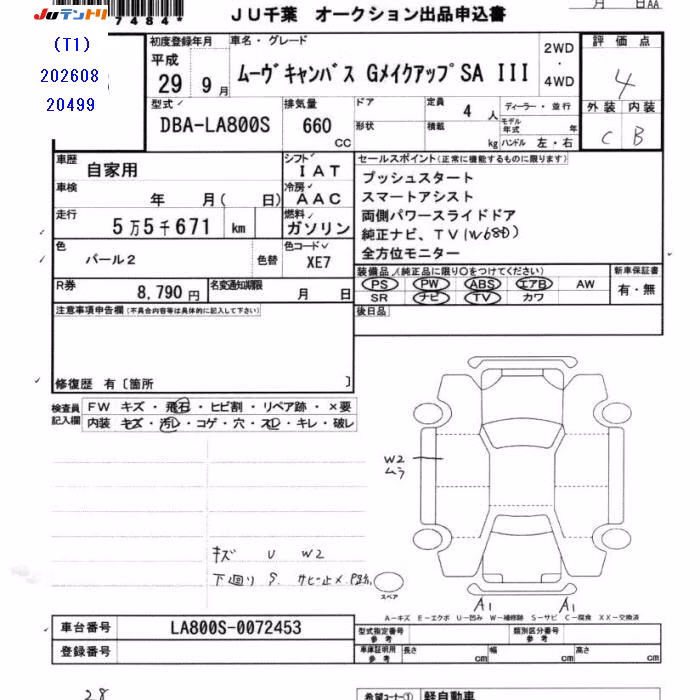 Juテントリ
7484*
JU千葉 オークション出品申込書
月 日AA
(T1)
202608
20499
初度登録年月
平成
29 9月
車名・グレード
ムーヴキャンバス GメイクアップSA III
2WD
・
4WD
評価点
4
外装 内装
C B
型式
DBA-LA800S
排気量
660
CC
ドア
形状
定員
4 人
積載
kg
ディーラー・並行
モデル年式 年
ハンドル 左・右
車歴
自家用
シフト
IAT
車検
年 月( 日)
冷房
AAC
走行
5万5千671 km
燃料
ガソリン
色
パール2
色替
色コード
XE7
R券
8,790円
名変通知期限
月 日
セールスポイント(正常に機能するものに限ります)
プッシュスタート
スマートアシスト
両側パワースライドドア
純正ナビ、TV(W68D)
全方位モニター
装備品(純正品に限り○をつけてください)
PS PW ABS エアB AW
SR ナビ TV カワ
新車保証書
有・無
後日品
注意事項申告欄(不具合内容等は具体的に記入して下さい)
修復歴 有〔箇所 〕
検査員
記入欄
FW キズ・飛石・ヒビ割・リペア跡・×要
内装 キズ・汚レ・コゲ・穴・スレ・キレ・破レ
W2
ムラ
キズ U W2
下廻り S. サビ止メ
スペア
A1 A1
A-キズ E-エクボ U-凹み W-補修跡 S-サビ C-腐食 XX-交換済
車台番号
LA800S-0072453
登録番号
型式指定番号
参考
類別区分番号
参考
車庫証明用
参考
長さ cm
幅 cm
高さ cm
28
希望コーナー① 軽自動車